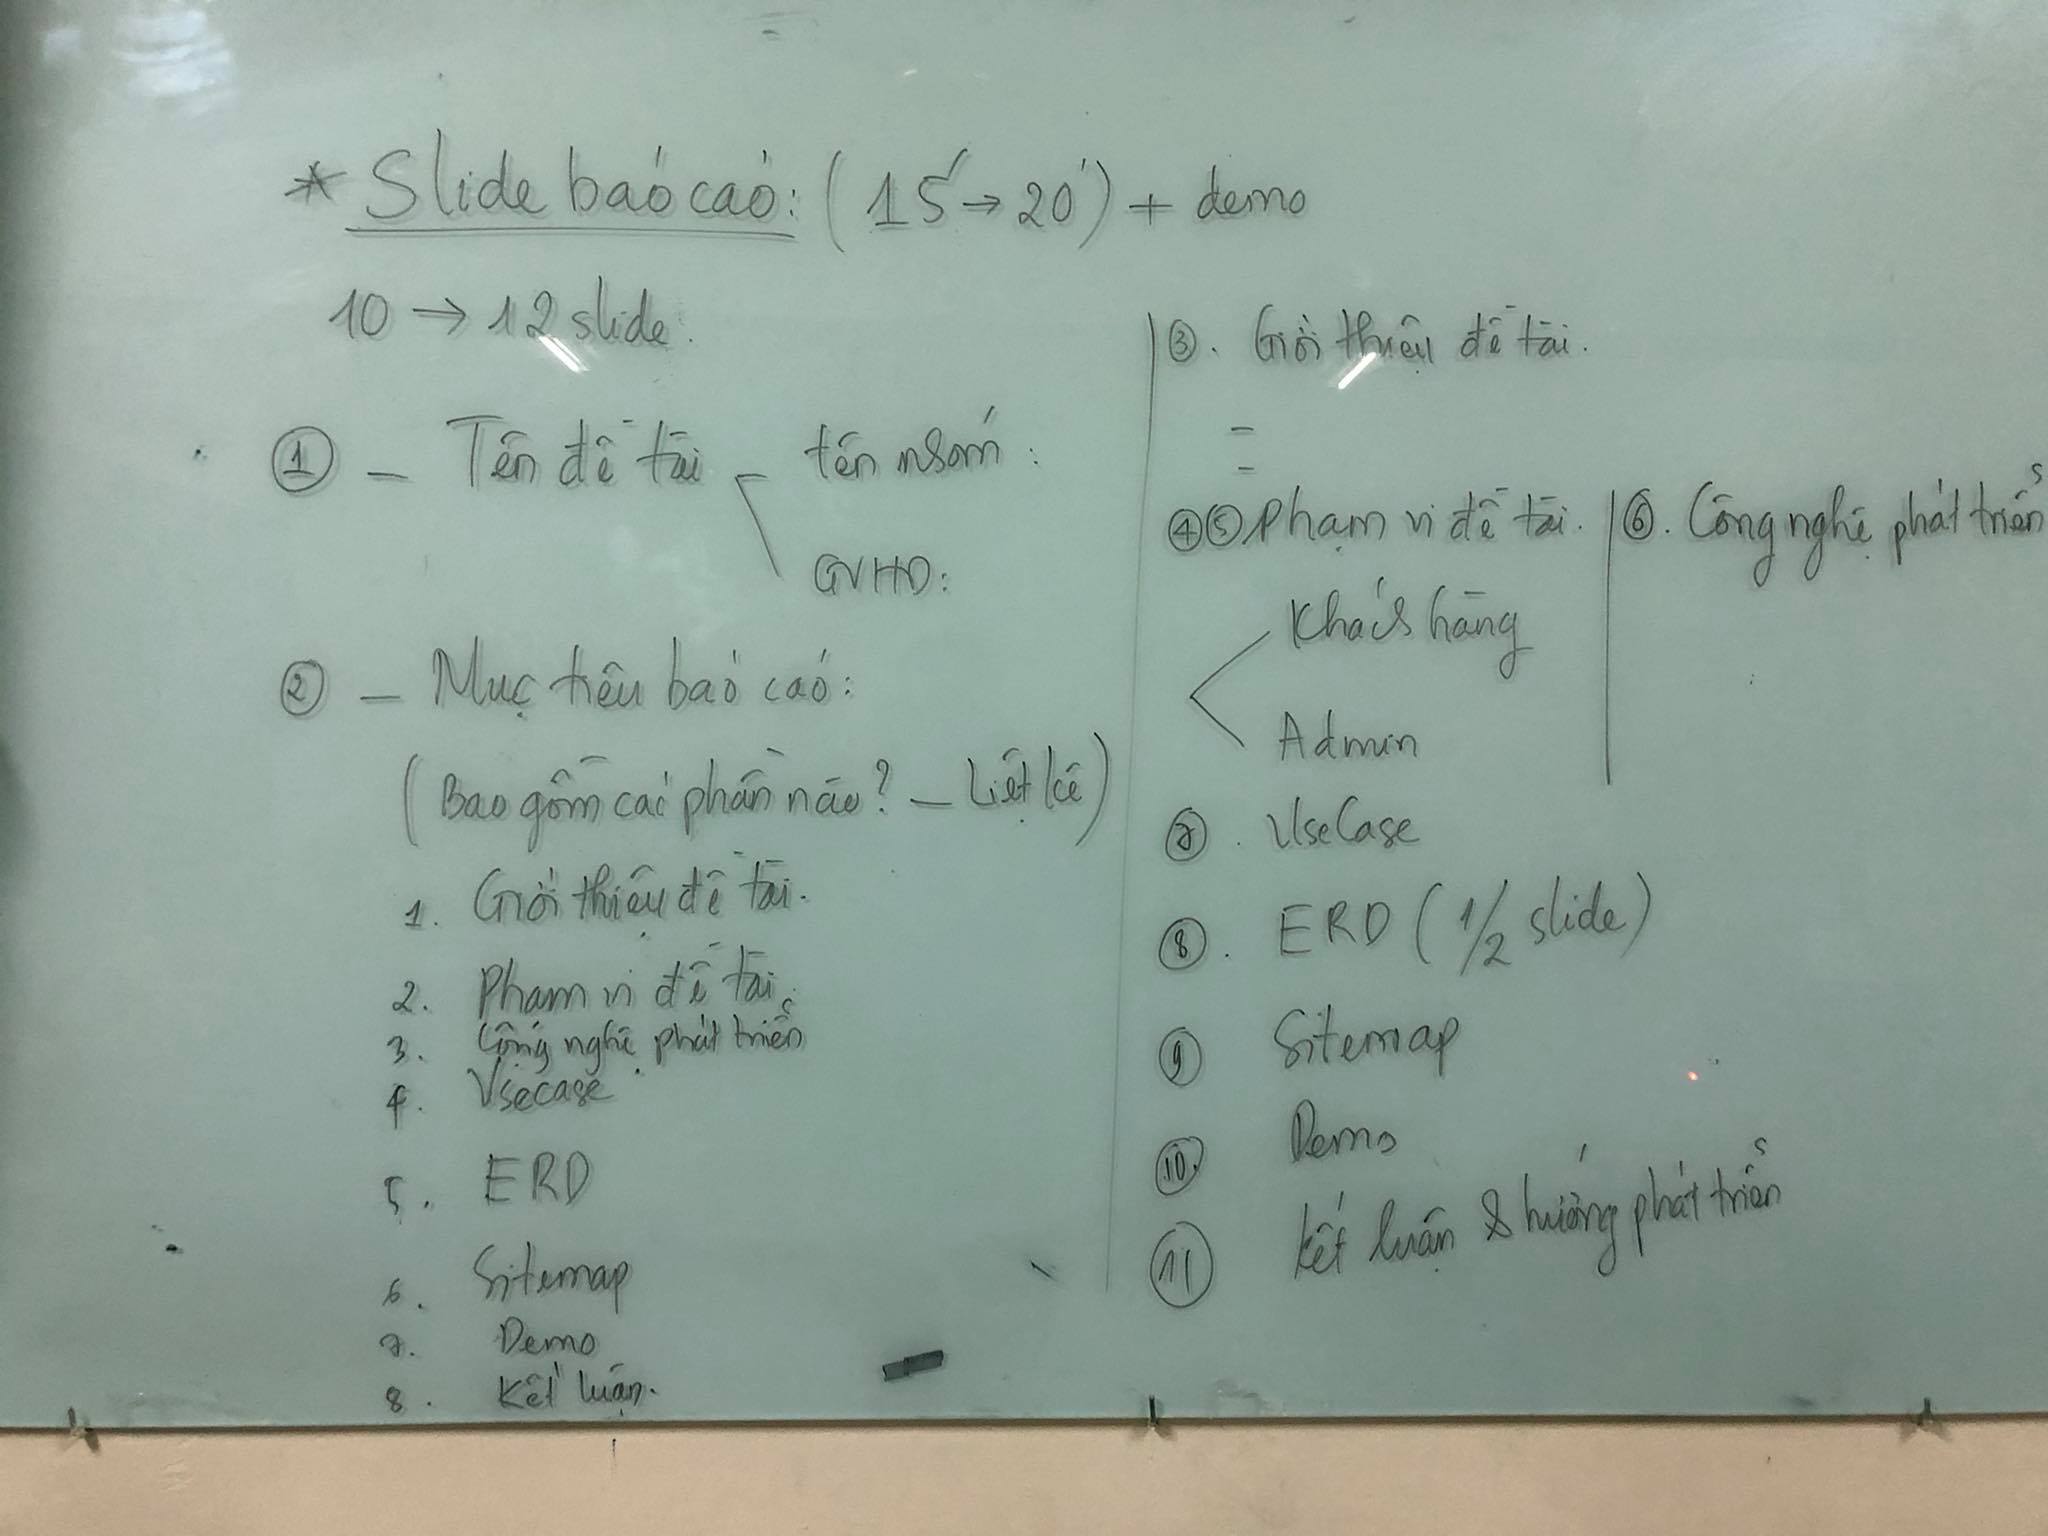 * Slide báo cáo: (15' → 20') + demo
10 → 12 slide.
① - Tên đề tài - tên nhóm:
GVHD:
② - Mục tiêu báo cáo:
(Bao gồm các phần nào? - Liệt kê)
1. Giới thiệu đề tài.
2. Phạm vi đề tài.
3. Công nghệ phát triển
4. Usecase
5. ERD
6. Sitemap
7. Demo
8. Kết luận.
③. Giới thiệu đề tài.
④⑤ Phạm vi đề tài.
Khách hàng
Admin
⑥. Công nghệ phát triển
⑦. UseCase
⑧. ERD (1/2 slide)
⑨ Sitemap
⑩. Demo
⑪ Kết luận & hướng phát triển